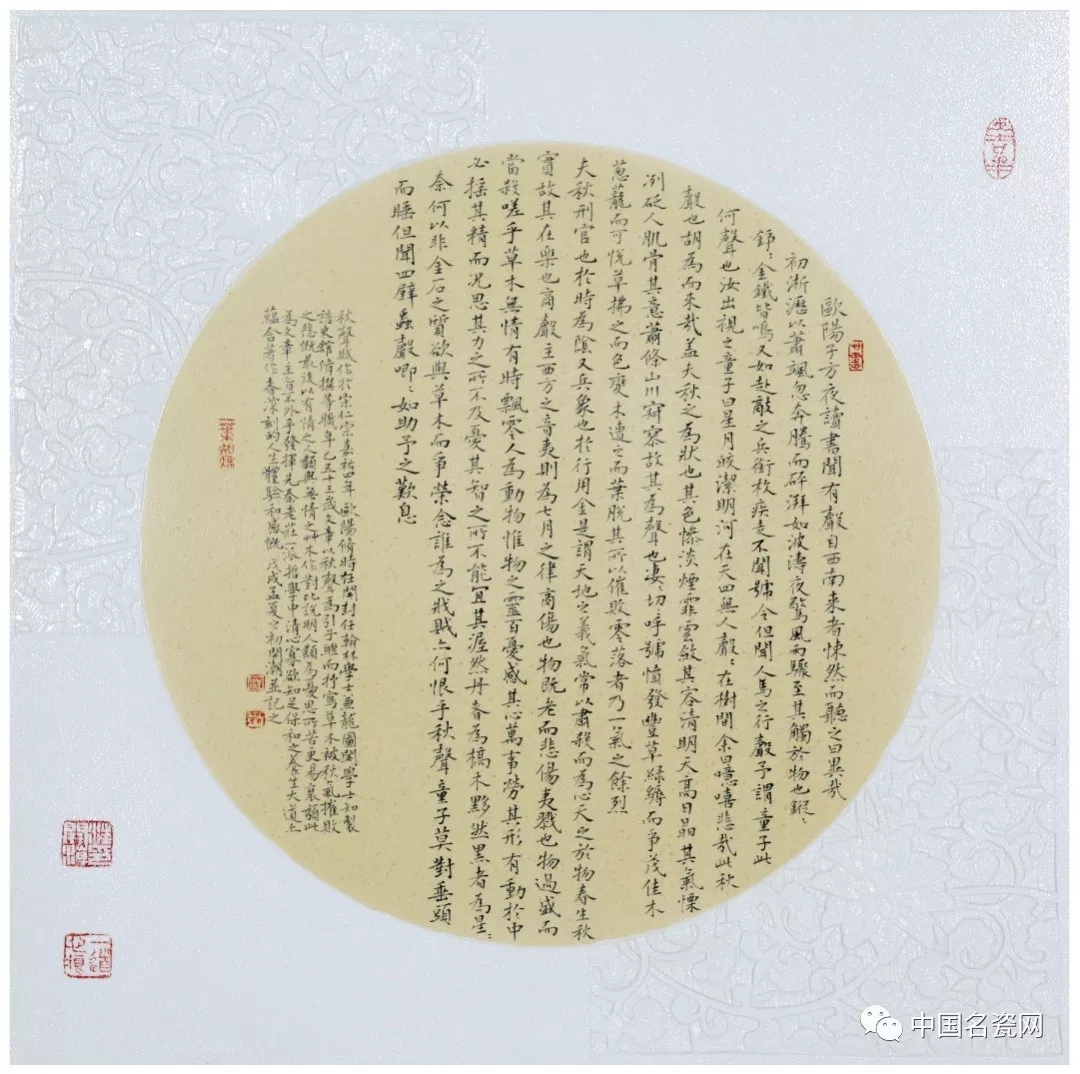 歐陽子方夜讀書聞有聲自西南来者悚然而聽之曰異哉
初淅瀝以蕭颯忽奔騰而砰湃如波濤夜驚風雨驟至其觸於物也鏦〻
錚〻金鐵皆鳴又如赴敵之兵銜枚疾走不聞號令但聞人馬之行聲予謂童子此
何聲也汝出視之童子曰星月皎潔明河在天四無人聲〻在樹間余曰噫嘻悲哉此秋
聲也胡為而来哉盖夫秋之為狀也其色惨淡煙霏雲斂其容清明天高日晶其氣慄
冽砭人肌骨其意蕭條山川寂寥故其為聲也凄〻切〻呼號憤發豐草綠縟而爭茂佳木
蔥蘢而可悅草拂之而色變木遭之而葉脫其所以催敗零落者乃一氣之餘烈
夫秋刑官也於時為陰又兵象也於行用金是謂天地之義氣常以肅殺而為心天之於物春生秋
實故其在樂也商聲主西方之音夷則為七月之律商傷也物既老而悲傷夷戮也物過盛而
當殺嗟乎草木無情有時飄零人為動物惟物之靈百憂感其心萬事勞其形有動於中
必搖其精而况思其力之所不及憂其智之所不能宜其渥然丹者為槁木黟然黑者為星〻
奈何以非金石之質欲與草木而爭榮念誰為之戕賊亦何恨乎秋聲童子莫對垂頭
而睡但聞四壁蟲聲唧〻如助予之歎息
秋聲賦作於宋仁宗嘉祐四年歐陽脩時在開封任翰林學士兼龍圖閣學士知製
誥史館脩撰等職年已五十三歲文章以秋聲為引子繼而抒寫草木被秋氣摧敗
之悲慨最後以有情之人類與無情之草木作對比說明人類為憂思所苦更易衰頹此
為文章主旨不外乎發揮先秦老莊一派哲學中清心寡欲知足保和之養生大道亦
蘊含著作者深刻的人生體驗和感慨戊戌孟夏之初開潮並記之
中国名瓷网